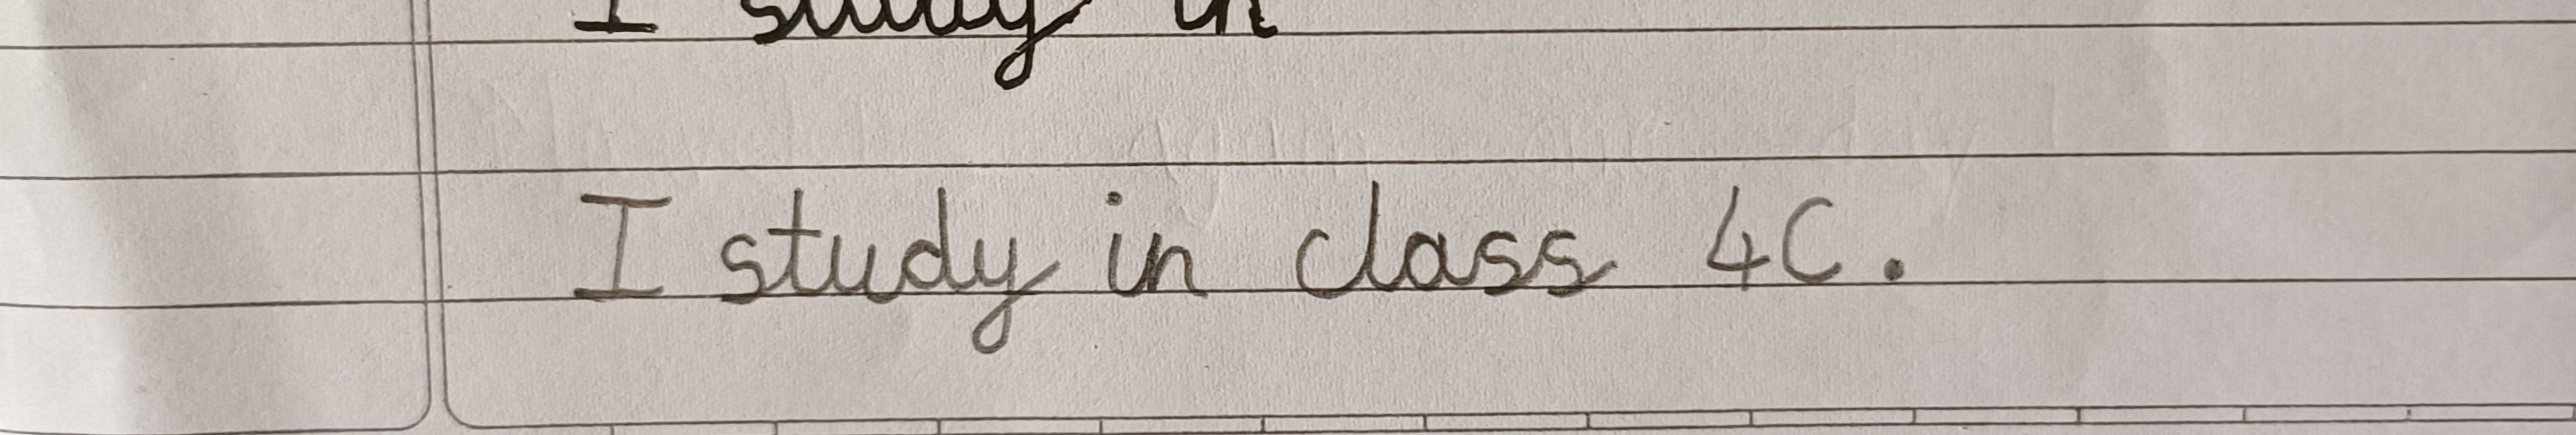 I study in
I study in class 4C.